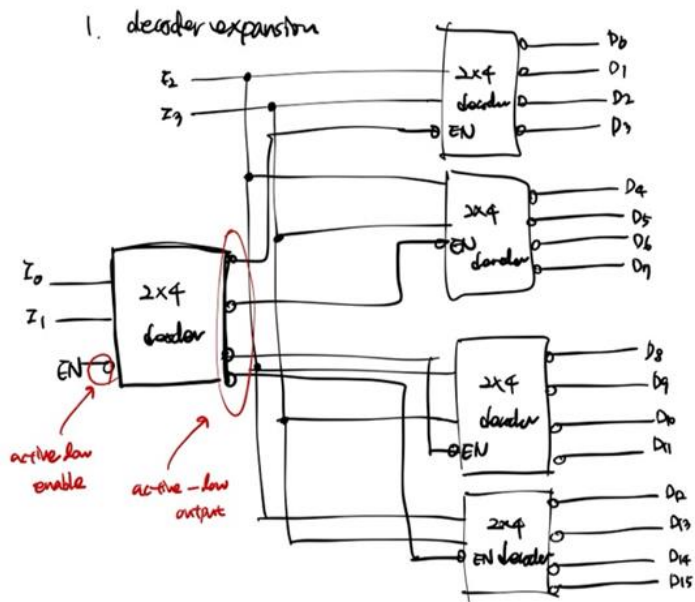 1. decoder expansion
I2
I3
2x4
decoder
EN
D0
D1
D2
D3
2x4
EN
decoder
D4
D5
D6
D7
I0
I1
EN
2x4
decoder
active low
enable
active-low
output
2x4
decoder
EN
D8
D9
D10
D11
2x4
EN decoder
D12
D13
D14
D15